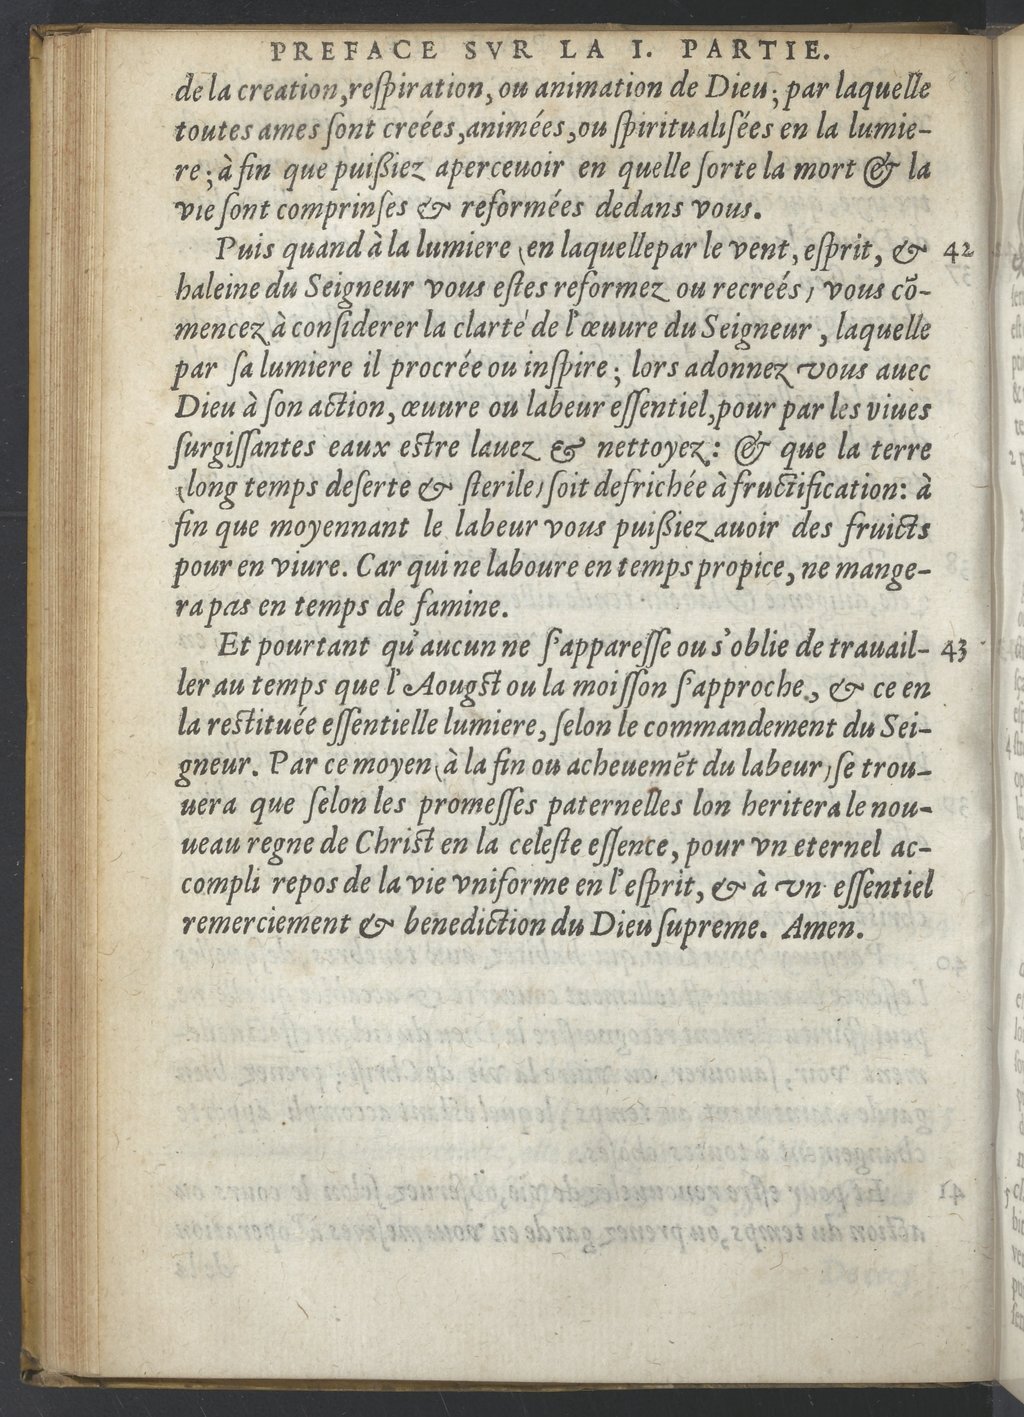 PREFACE SVR LA I. PARTIE.
de la creation, reſpiration, ou animation de Dieu; par laquelle
toutes ames ſont creées, animées, ou ſpiritualiſées en la lumie-
re; à fin que puißiez apercevoir en quelle ſorte la mort & la
vie ſont comprinſes & reformées dedans vous.
Puis quand à la lumiere (en laquelle par le vent, eſprit, & 42
haleine du Seigneur vous eſtes reformez ou recreés) vous cō-
mencez à conſiderer la clarté de l'œuure du Seigneur, laquelle
par ſa lumiere il procrée ou inſpire; lors adonnez vous auec
Dieu à ſon action, œuure ou labeur eſſentiel, pour par les viues
ſurgiſſantes eaux eſtre lauez & nettoyez: & que la terre
(long temps deſerte & ſterile) ſoit defrichée à fructification: à
fin que moyennant le labeur vous puißiez auoir des fruicts
pour en viure. Car qui ne laboure en temps propice, ne mange-
ra pas en temps de famine.
Et pourtant qu'aucun ne ſ'appareſſe ou s'oblie de trauail- 43
ler au temps que l'Aougſt ou la moiſſon ſ'approche, & ce en
la reſtituée eſſentielle lumiere, ſelon le commandement du Sei-
gneur. Par ce moyen (à la fin ou acheuemēt du labeur) ſe trou-
uera que ſelon les promeſſes paternelles lon heritera le nou-
ueau regne de Chriſt en la celeſte eſſence, pour vn eternel ac-
compli repos de la vie vniforme en l'eſprit, & à vn eſſentiel
remerciement & benediction du Dieu ſupreme. Amen.